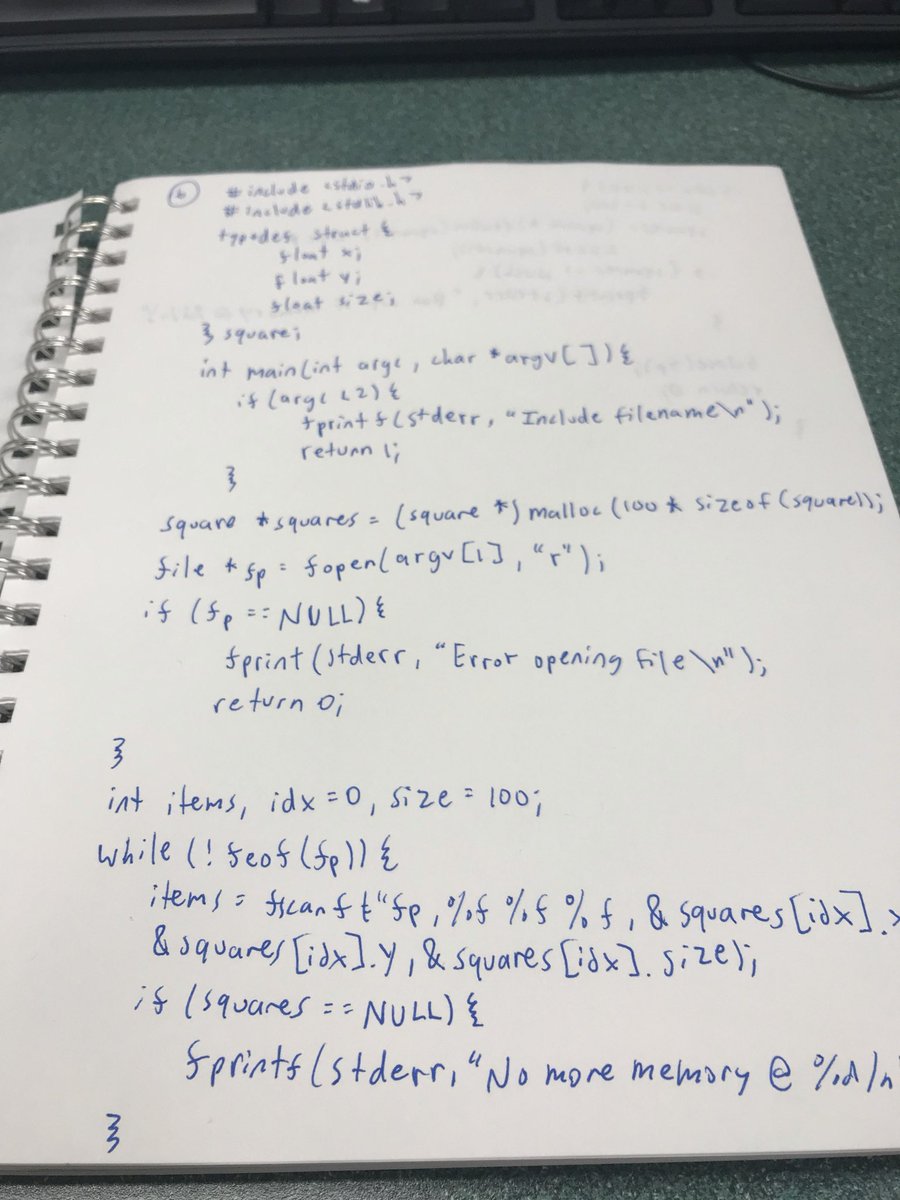 6
#include <stdio.h>
#include <stdlib.h>
typedef struct {
float x;
float y;
float size;
} square;
int main(int argc, char *argv[]){
if (argc < 2) {
fprintf(stderr, "Include filename\n");
return 1;
}
square *squares = (square *) malloc(100 * sizeof(square));
file *fp = fopen(argv[1], "r");
if (fp == NULL) {
fprint(stderr, "Error opening file\n");
return 0;
}
int items, idx=0, size = 100;
while (!feof(fp)) {
items = fscanf("fp, %f %f %f, &squares[idx].x
&squares[idx].y, &squares[idx].size);
if (squares == NULL) {
fprintf(stderr, "No more memory @ %d/n"
}